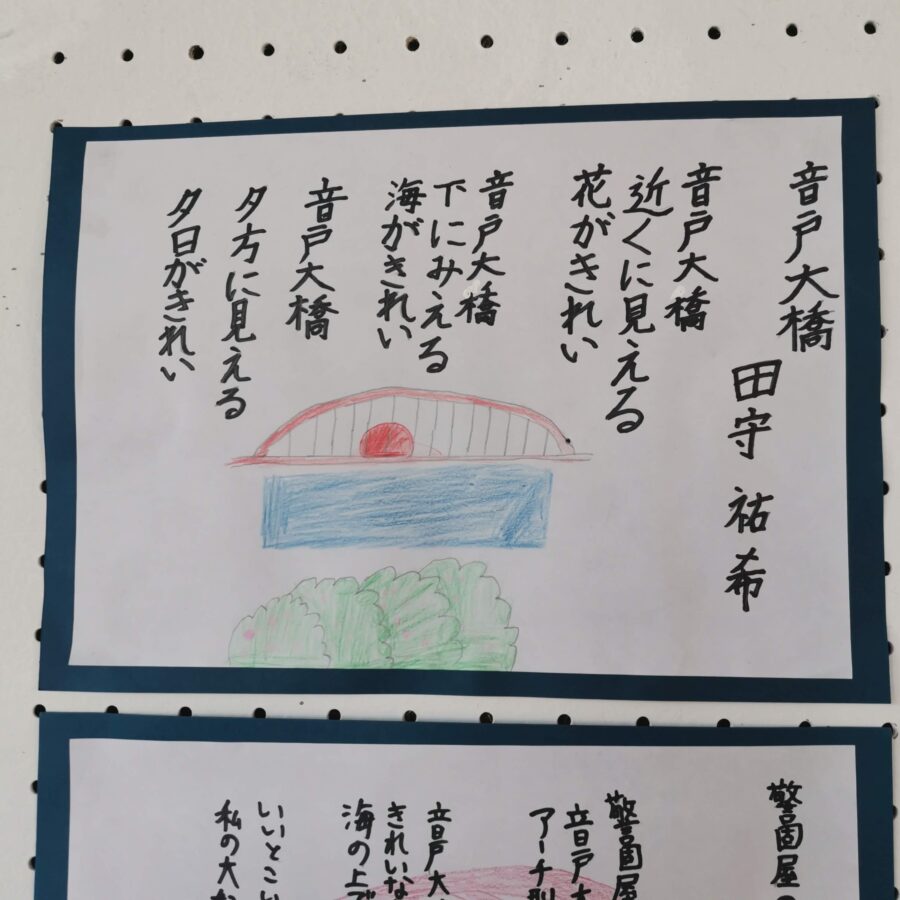 音戸大橋
田守 祐希
音戸大橋
近くに見える
花がきれい
音戸大橋
下にみえる
海がきれい
音戸大橋
夕方に見える
夕日がきれい
警固屋
警固屋
音戸大
アーチ型
音戸大
きれいな
海の上で
いいとこ
私の大